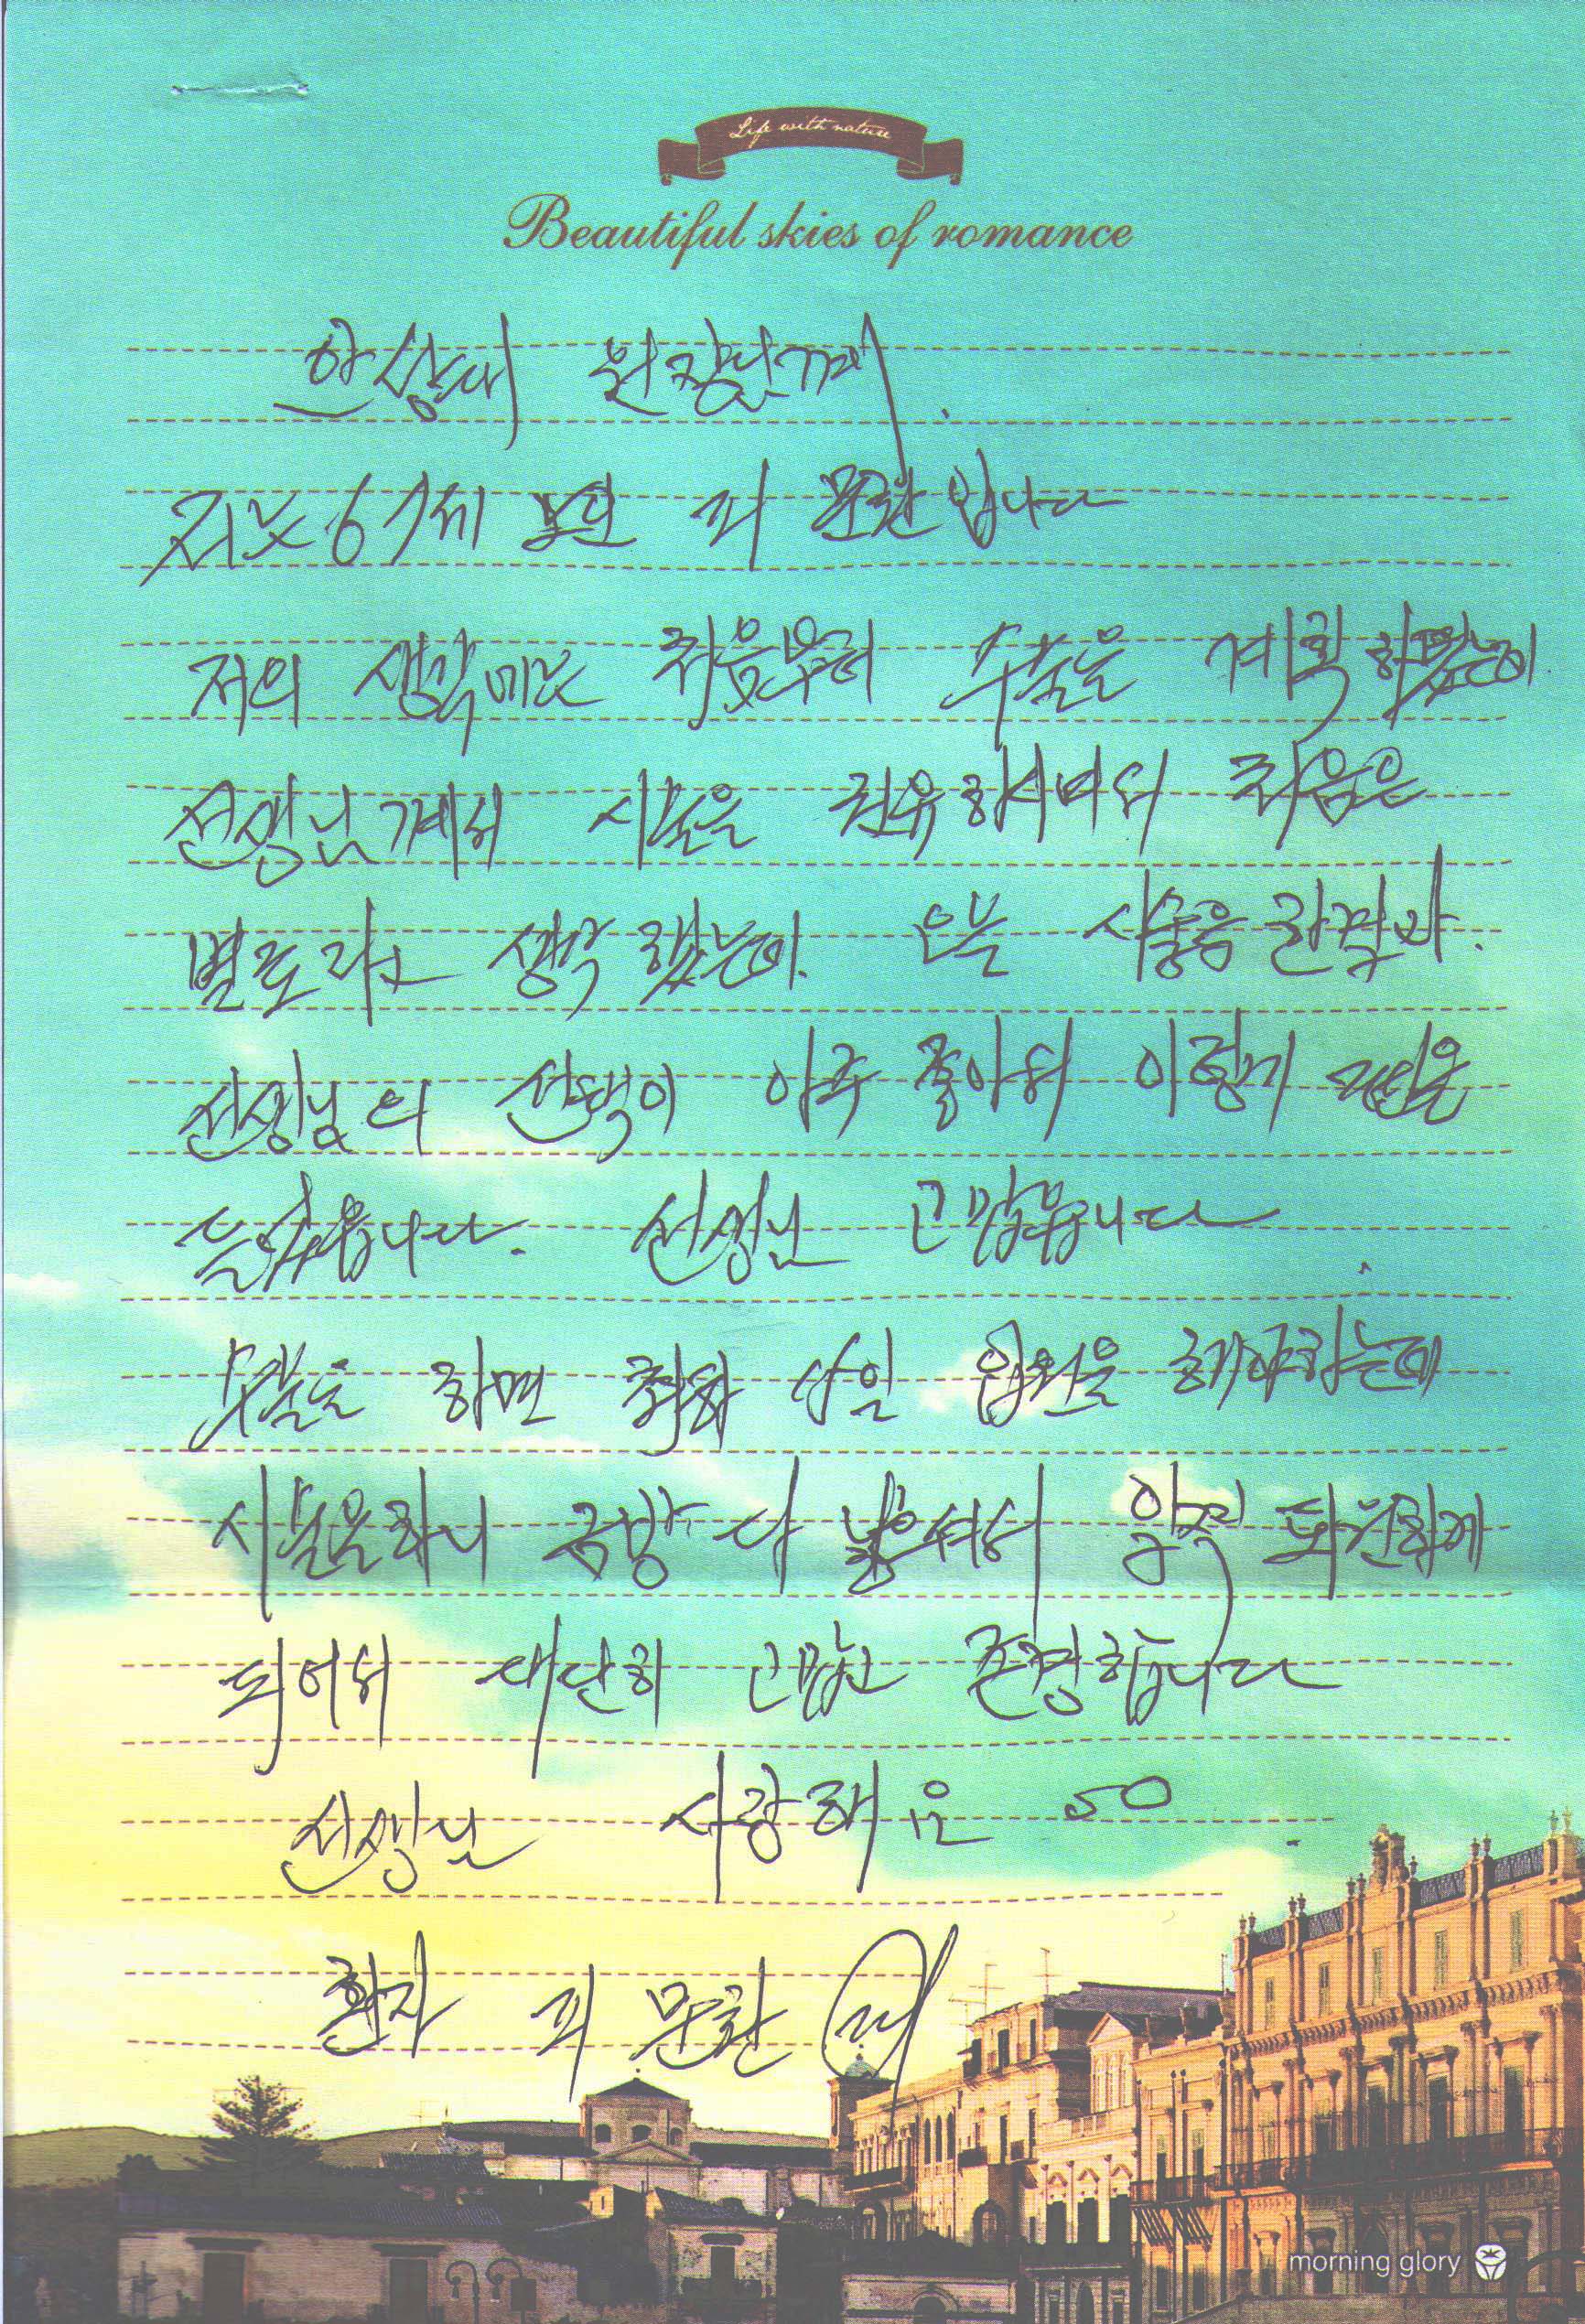 Life with nature
Beautiful skies of romance
한상배 원장님께.
저는 67세 노인 피 문환 입니다
저의 생각에는 처음부터 수술을 계획 하였는데
선생님 께서 시술을 권유하시며서 처음은
별로라고 생각 했는데. 오늘 시술을 한결과.
선생님의 선택이 아주 좋아서 이렇게 편은
선생님 고맙습니다.
수술은 하면 삼일 입원을 해야하는데
시술을하니 금방 다 낳으셔서 일찍 퇴원하게
되어서 대단히 고맙고 존경합니다
선생님 사랑해요
환자 피 문환
morning glory